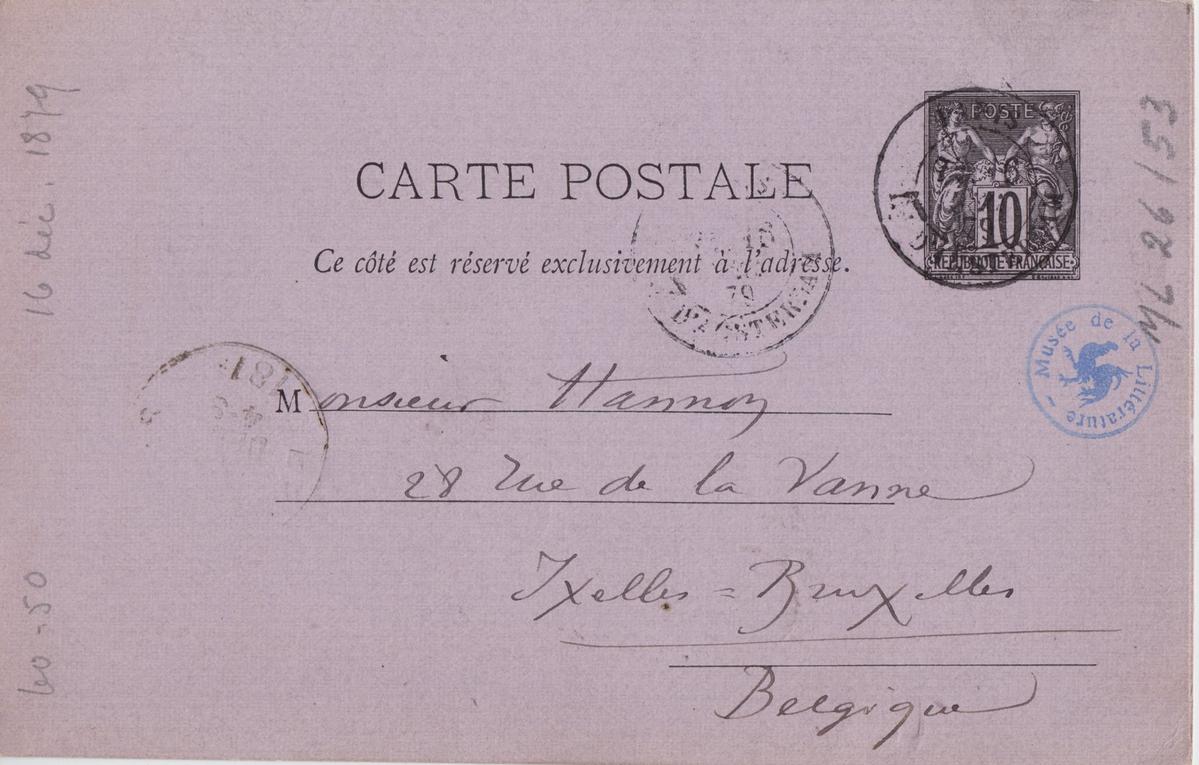 16 déc. 1879
60-50
CARTE POSTALE
Ce côté est réservé exclusivement à l'adresse.
POSTE
10
REPUBLIQUE FRANÇAISE
79
ML 26/53
Musée de la Littérature
Monsieur Hannon
28 Rue de la Vanne
Ixelles = Bruxelles
Belgique